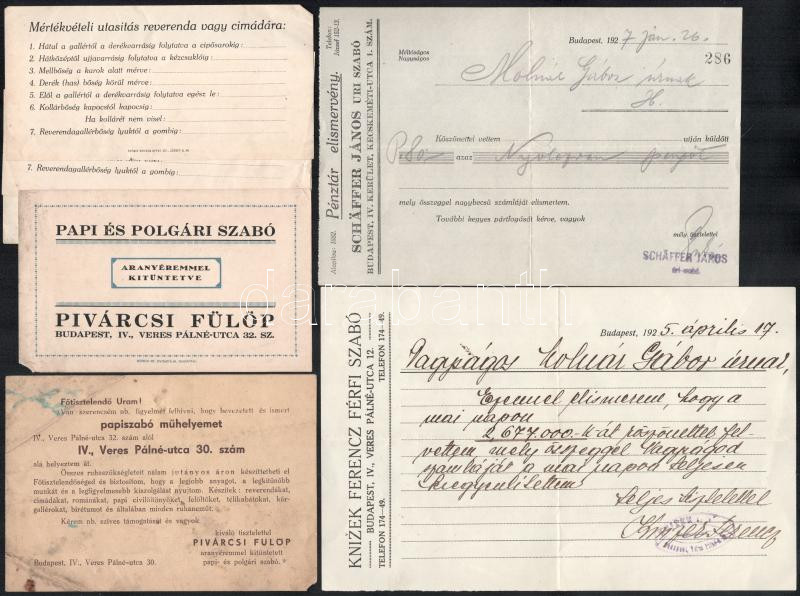 Mértékvételi utasitás reverenda vagy cimádára:
1. Hátul a gallértól a derékvarrásig folytatva a cipősarokig:
2. Hátközéptől ujjavarrásig folytatva a kézcsuklóig:
3. Mellbőség a karok alatt mérve:
4. Derék (has) bőség körül mérve:
5. Elől a gallértól a derékvarrásig folytatva egész le:
6. Kollárbőség kapocstól kapocsig:
Ha kollárét nem visel:
7. Reverendagallérbőség lyuktól a gombig:
7. Reverendagallérbőség lyuktól a gombig:
PAPI ÉS POLGÁRI SZABÓ
ARANYÉREMMEL
KITÜNTETVE
PIVÁRCSI FÜLÖP
BUDAPEST, IV., VERES PÁLNÉ-UTCA 32. SZ.
Főtisztelendő Uram!
Van szerencsém nb. figyelmét felhivni, hogy bevezetett és ismert
papiszabó műhelyemet
IV., Veres Pálné-utca 32. szám alól
IV., Veres Pálné-utca 30. szám
alá helyeztem át.
Összes ruhaszükségletét nálam jutányos áron készíttetheti el
Főtisztelendőséged és biztosítom, hogy a legjobb anyagot, a legkitünőbb
munkát és a legfigyelmesebb kiszolgálást nyujtom. Készítek: reverendákat,
cimádákat, románákat, papi civilöltönyöket, felöltőket, télikabátokat, kör-
gallérokat, birétumot és általában minden ruhaneműt.
Kérem nb. szíves támogatását és vagyok
kiváló tisztelettel
PIVÁRCSI FÜLÖP
aranyéremmel kitüntetett
papi- és polgári szabó.
Budapest, IV., Veres Pálné-utca 30.
Alapítva: 1882. Pénztár elismervény. Telefon: József 152-13.
SCHÄFFER JÁNOS URI SZABÓ
BUDAPEST, IV. KERÜLET, KECSKEMÉTI-UTCA 1. SZÁM.
Budapest, 1927 jan. 26.
286
Méltóságos
Nagyságos
Molnár Gábor úrnak
H.
Köszönettel vettem utján küldött
P 80 azaz Nyolcvan pengőt
mely összeggel nagybecsű számláját elismertem.
További kegyes pártfogását kérve, vagyok
mély tisztelettel
SCHÄFFER JÁNOS
úri szabó.
KNIŽEK FERENCZ FÉRFI SZABÓ
BUDAPEST, IV., VERES PÁLNÉ-UTCA 12.
TELEFON 174—49. TELEFON 174—49.
Budapest, 1925. április 17.
Nagyságos Molnár Gábor úrnak,
Ezennel elismerem, hogy a
mai napon
2,677.000.- K-át köszönettel fel-
vettem mely összeggel Nagyságod
számláját a mai napod teljesen
kiegyenlítettem!
Teljes tisztelettel
Knižek Ferencz
darabanth